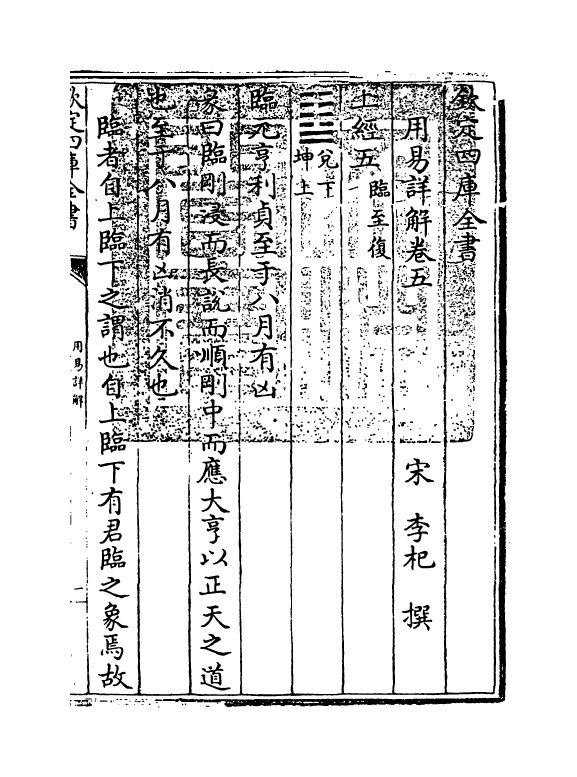 欽定四庫全書
用易詳解卷五
宋 李杞 撰
上經五 臨至復
䷒ 兌下
坤上
臨元亨利貞至于八月有凶
彖曰臨剛浸而長說而順剛中而應大亨以正天之道
也至于八月有凶消不久也
臨者自上臨下之謂也自上臨下有君臨之象焉故
欽定四庫全書
用易詳解